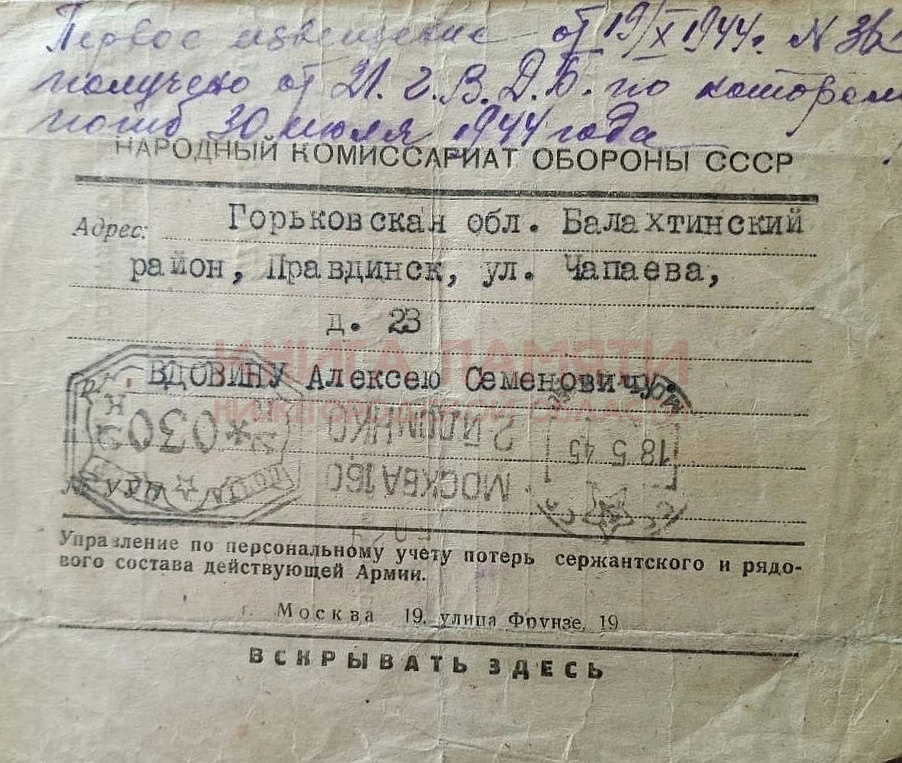 Первое извещение от 19/X 1944г. N 36
получено от 21. г. В. Д. Б. по котором
погиб 30 июля 1944 года
НАРОДНЫЙ КОМИССАРИАТ ОБОРОНЫ СССР
Адрес: Горьковская обл. Балахтинский
район, Правдинск, ул. Чапаева,
д. 23
КНИГА ПАМЯТИ
ВДОВИНУ Алексею Семеновичу.
НИЖЕГОРОДСКОЙ ОБЛАСТИ
*0303
18 5 45
МОСКВА 160
ПОЧТА
Управление по персональному учету потерь сержантского и рядо-
вого состава действующей Армии.
г. Москва 19, улица Фрунзе, 19
ВСКРЫВАТЬ ЗДЕСЬ